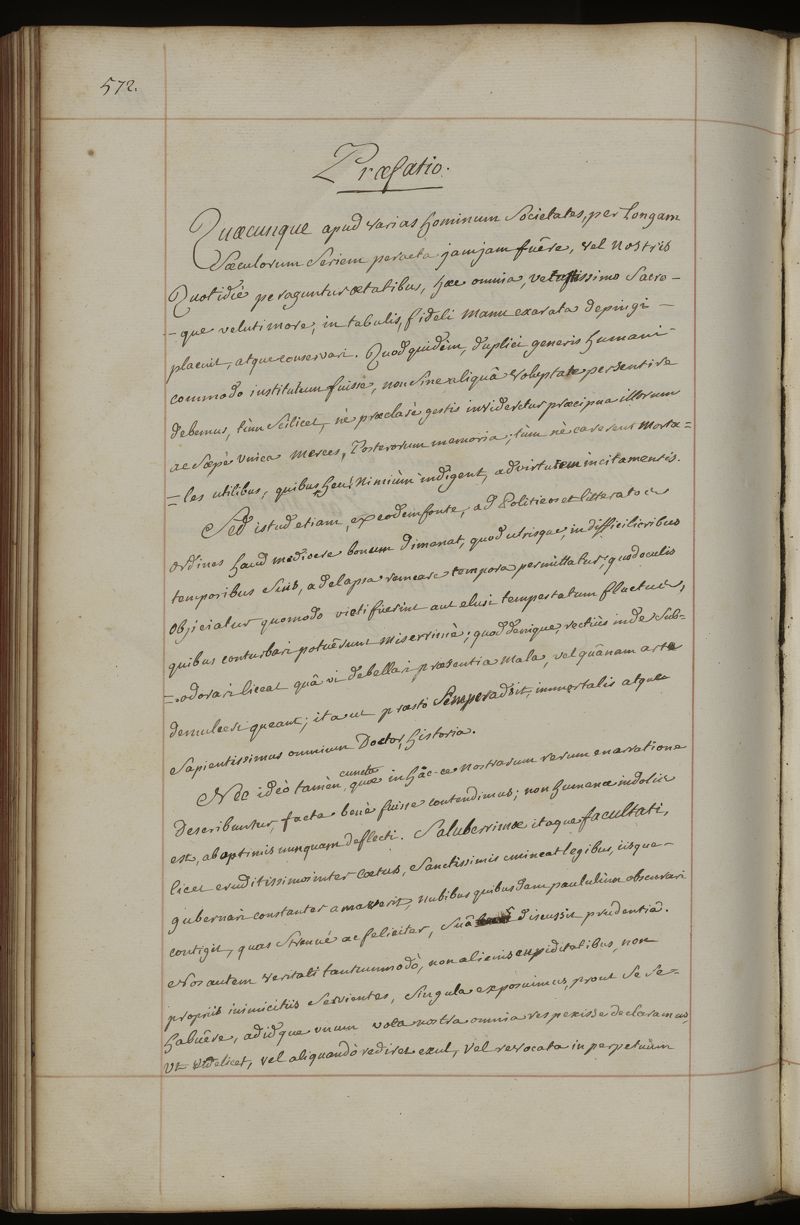 572.
Præfatio.
Quæcunque apud varias hominum Societates, per Longam
Sæculorum Seriem peracta jamjam fuêre, vel nostris
Quotidiè peraguntur ætatibus, hæc omnia, vetustissimo Sacro-
-que veluti more, in tabulis, fideli manu exarata depingi
placuit, atque conservari. Quod quidèm, duplici generis humani
commodo institutum fuisse, non sine aliquâ voluptate persentire
debemus, tùm Scilicet, nè præclarè gestis invideretur præcipua illorum
ac Sæpè unica merces, Posterorum memoria; tùm nè carerent morta=
=les utilibus, quibus, heu! nimiùm indigent, ad virtutem incitamentis.
Sed istud etiam, ex eodem fonte, ad Politicos et litteratos
ordines haud mediocre bonum dimanat, quod utrisque, in difficilioribus
temporibus Suis, ad elapsa remeare tempora permittatur; quod oculis
objiciatur quomodo victi fuerint aut elusi tempestatum fluctus,
quibus conturbari potuêrunt miserrimè; quod denique, rectiùs inde Sub=
=odorari liceat quâ vi debellari præsentia mala, vel quânam arte
demulceri queant; ita ut præsto Semper adsit, immortalis atque
Sapientissimus omnium Doctor, historia.
Nec ideò tamèn, cuncta quæ in hâc-ce nostrarum rerum enarratione
describuntur, facta benè fuisse contendimus; non humanæ indolis
est, ab optimis nunquam deflecti. Saluberrimæ itaque facultati,
licet eruditissimos inter cœtus, Sanctissimis emineat legibus, iisque
gubernari constanter amaverit, nubibus quibusdam paululùm obscurari
contigit, quas Strenuè ac feliciter, Suâ discussit prudentiâ.
Nos autem veritati tantummodò, non alienis cupiditatibus, non
propriis inimicitiis Servientes, Singula exposuimus, prout Se Se
habuêre, ad idque unum vota nostra omnia respexisse declaramus,
ut videlicet, vel aliquandò rediret exul, vel revocata in perpetuùm